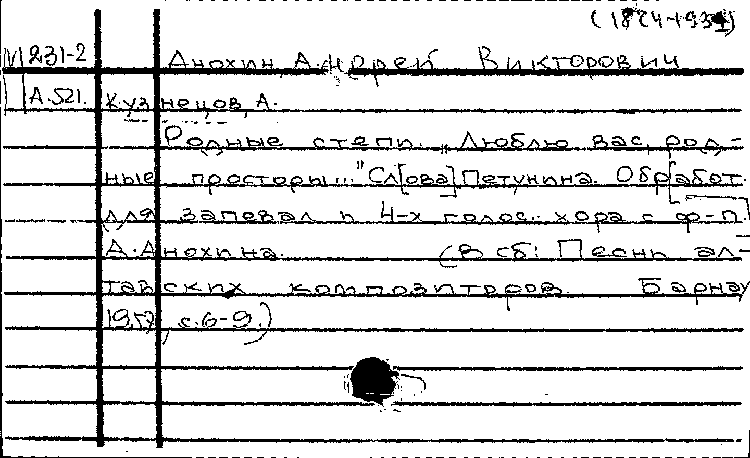 (1874-1931)
М 231-2 Анохин, Андрей Викторович
А.521. Кузнецов, А.
Родные степи. „Люблю вас, род-
ные просторы..." Сл[ова] Петунина. Обработ.
для запевал и 4-х голос. хора с ф-п.
А. Анохина. (В сб: Песни ал-
тайских композиторов. Барнау
1957, с. 6-9.)